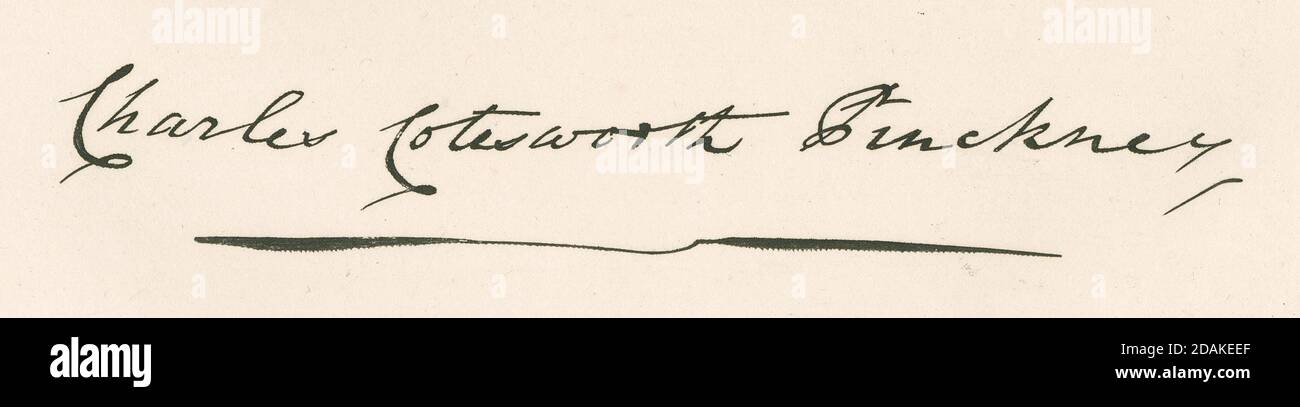 Charles Cotesworth Pinckney
alamy
alamy
Image ID: 2DAKEEF
www.alamy.com